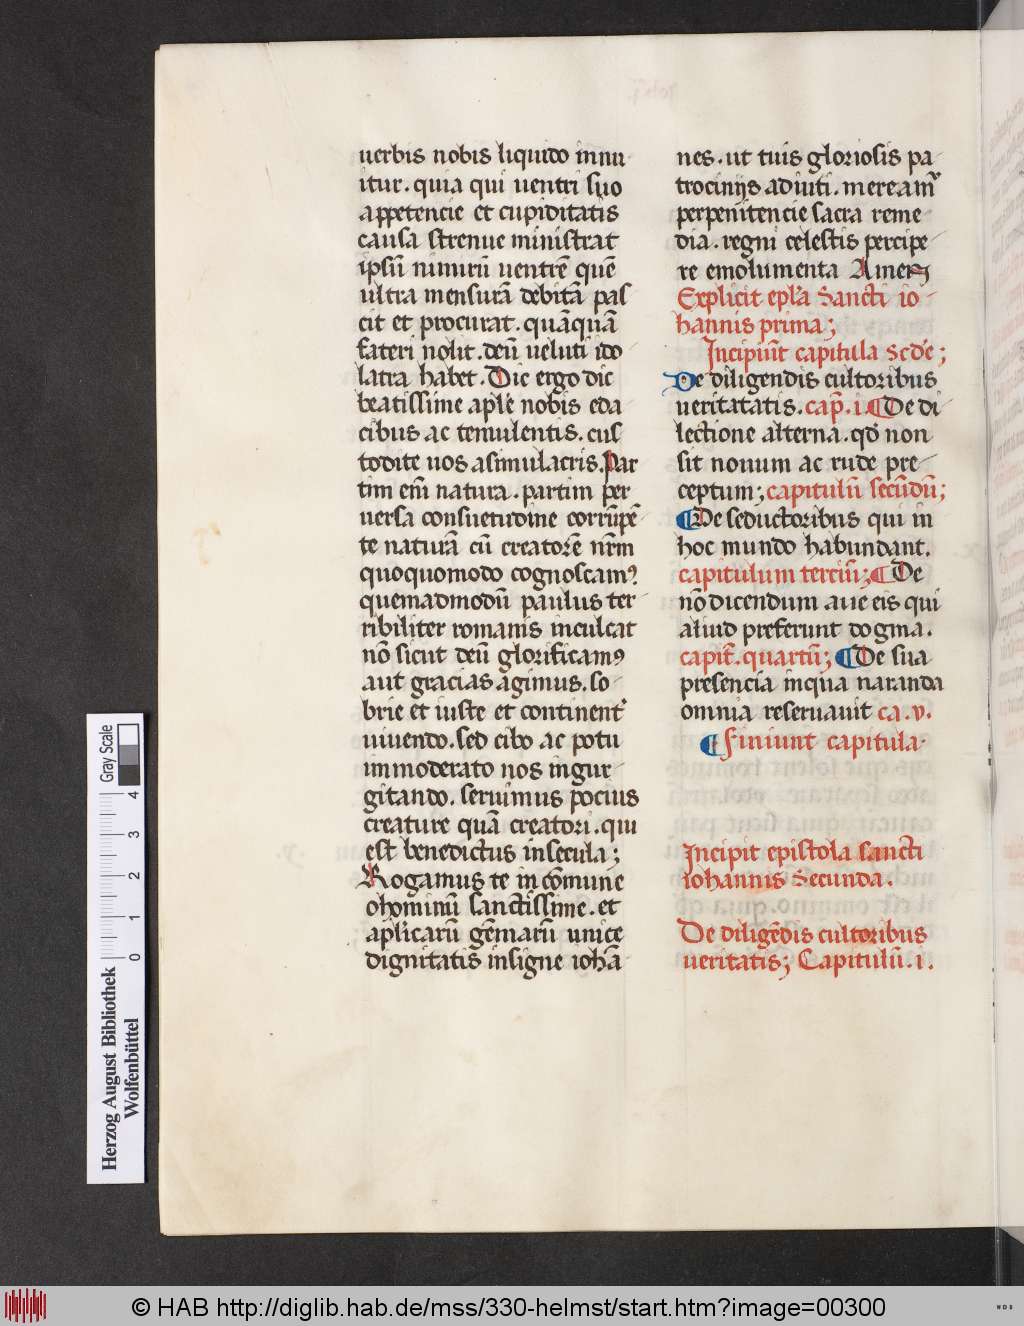 uerbis nobis liquido innu
itur. quia qui uentri suo
appetencie et cupiditatis
causa strenue ministrat
ipsū nimirū uentrē quē
ultra mensurā debitā pas
cit et procurat. quāquā
fateri nolit. deū ueluti ido
latra habet. Dic ergo dic
beatissime aple nobis eda
cibus ac temulentis. cus
todite uos asimulacris. Par
tim em̄ natura. partim per
uersa consuetudine corrūpē
te naturā cū creatorē nrm
quoquomodo cognoscamꝰ.
quemadmodū paulus ter
ribiliter romanis inculcat
nō sicut deū glorificamꝰ
aut gracias agimus. so
brie et iuste et continent᷑
uiuendo. sed cibo ac potu
immoderato nos ingur
gitando. seruimus pocius
creature quā creatori. qui
est benedictus insecula;
Rogamus te in cōmune
ohominū sanctissime. et
aplicarū gēmarū unice
dignitatis insigne iohā
nes. ut tuis gloriosis pa
trocinijs adiuti. meream᷑
perpenitencie sacra reme
dia. regni celestis percipe
re emolumenta Amen
Explicit epl'a Sancti io
hannis prima;
Incipiūt capitula scd'e;
De diligendis cultoribus
ueritatatis. cap̄. i. ¶ De di
lectione alterna. qd̄ non
sit nouum ac rude pre
ceptum; capitulū secūdū;
¶ De seductoribus qui in
hoc mundo habundant.
capitulum terciū; ¶ De
nō dicendum aue eis qui
aliud preferunt dogma.
capit̄. quartū; ¶ De sua
presencia inqua naranda
omnia reseruauit ca. v.
¶ finiunt capitula.
Incipit epistola sancti
iohannis Secunda.
De diligēdis cultoribus
ueritatis; Capitulū. i.
Herzog August Bibliothek
Wolfenbüttel
0 1 2 3 4
Gray Scale
© HAB http://diglib.hab.de/mss/330-helmst/start.htm?image=00300